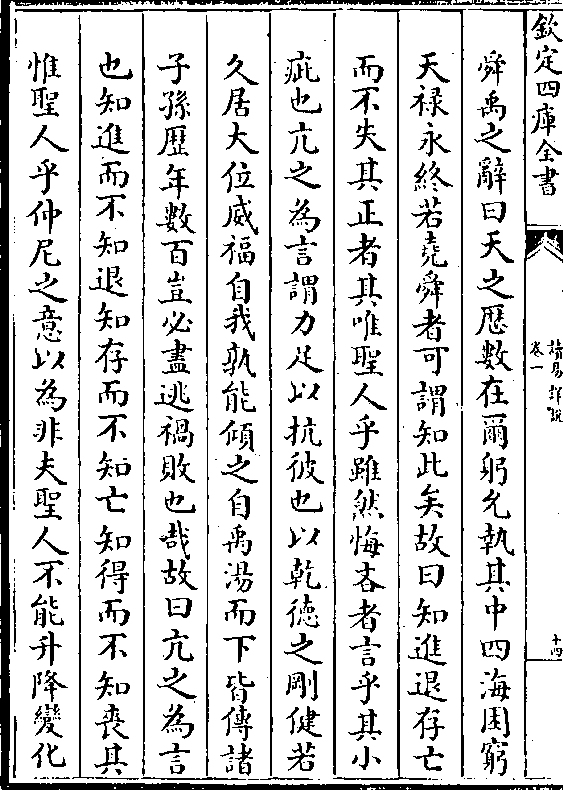 欽定四庫全書
讀易詳說
卷一
十四
舜禹之辭曰天之厯數在爾躬允執其中四海困窮
天禄永終若堯舜者可謂知此矣故曰知進退存亡
而不失其正者其唯聖人乎雖然悔吝者言乎其小
疵也亢之為言謂力足以抗彼也以乾徳之剛健若
久居大位威福自我孰能傾之自禹湯而下皆傳諸
子孫歴年數百豈必盡逃禍敗也哉故曰亢之為言
也知進而不知退知存而不知亡知得而不知喪其
惟聖人乎仲尼之意以為非夫聖人不能升降變化